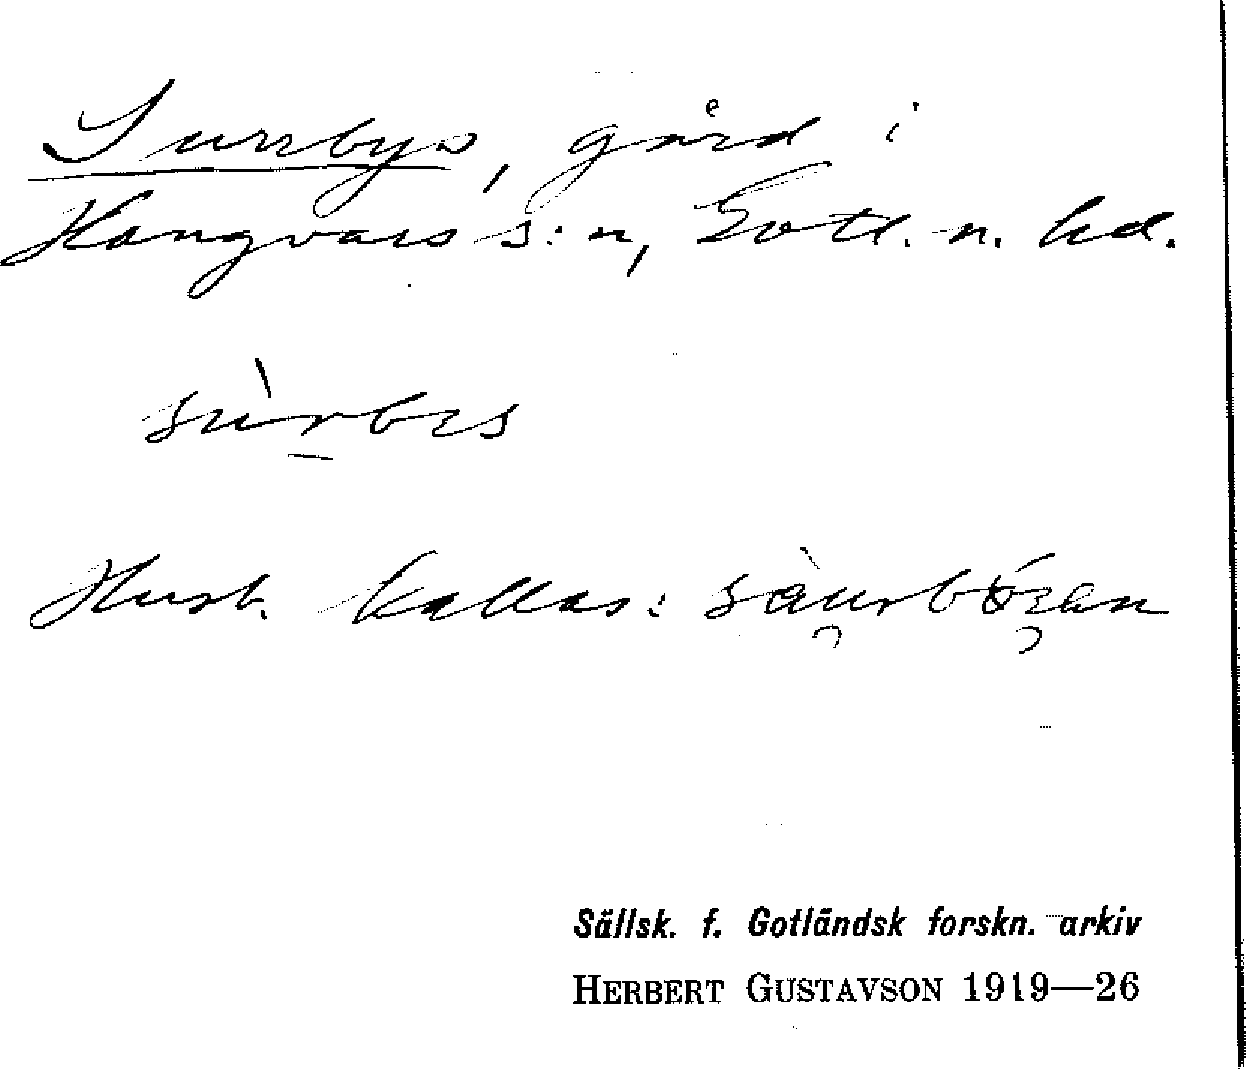 Surrbys, gård i
Hangvars s:n, Gotl. n. hd.
sùrbis
Husb. kallas:
Sällsk. f. Gotländsk forskn. arkiv
HERBERT GUSTAVSON 1919—26